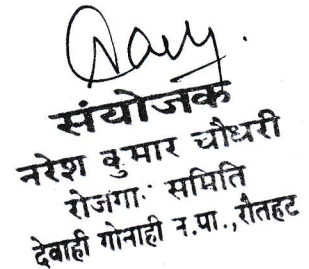 संयोजक
नरेश कुमार चौधरी
रोजगा: समिति
देवाही गोनाही न.पा.,रौतहट